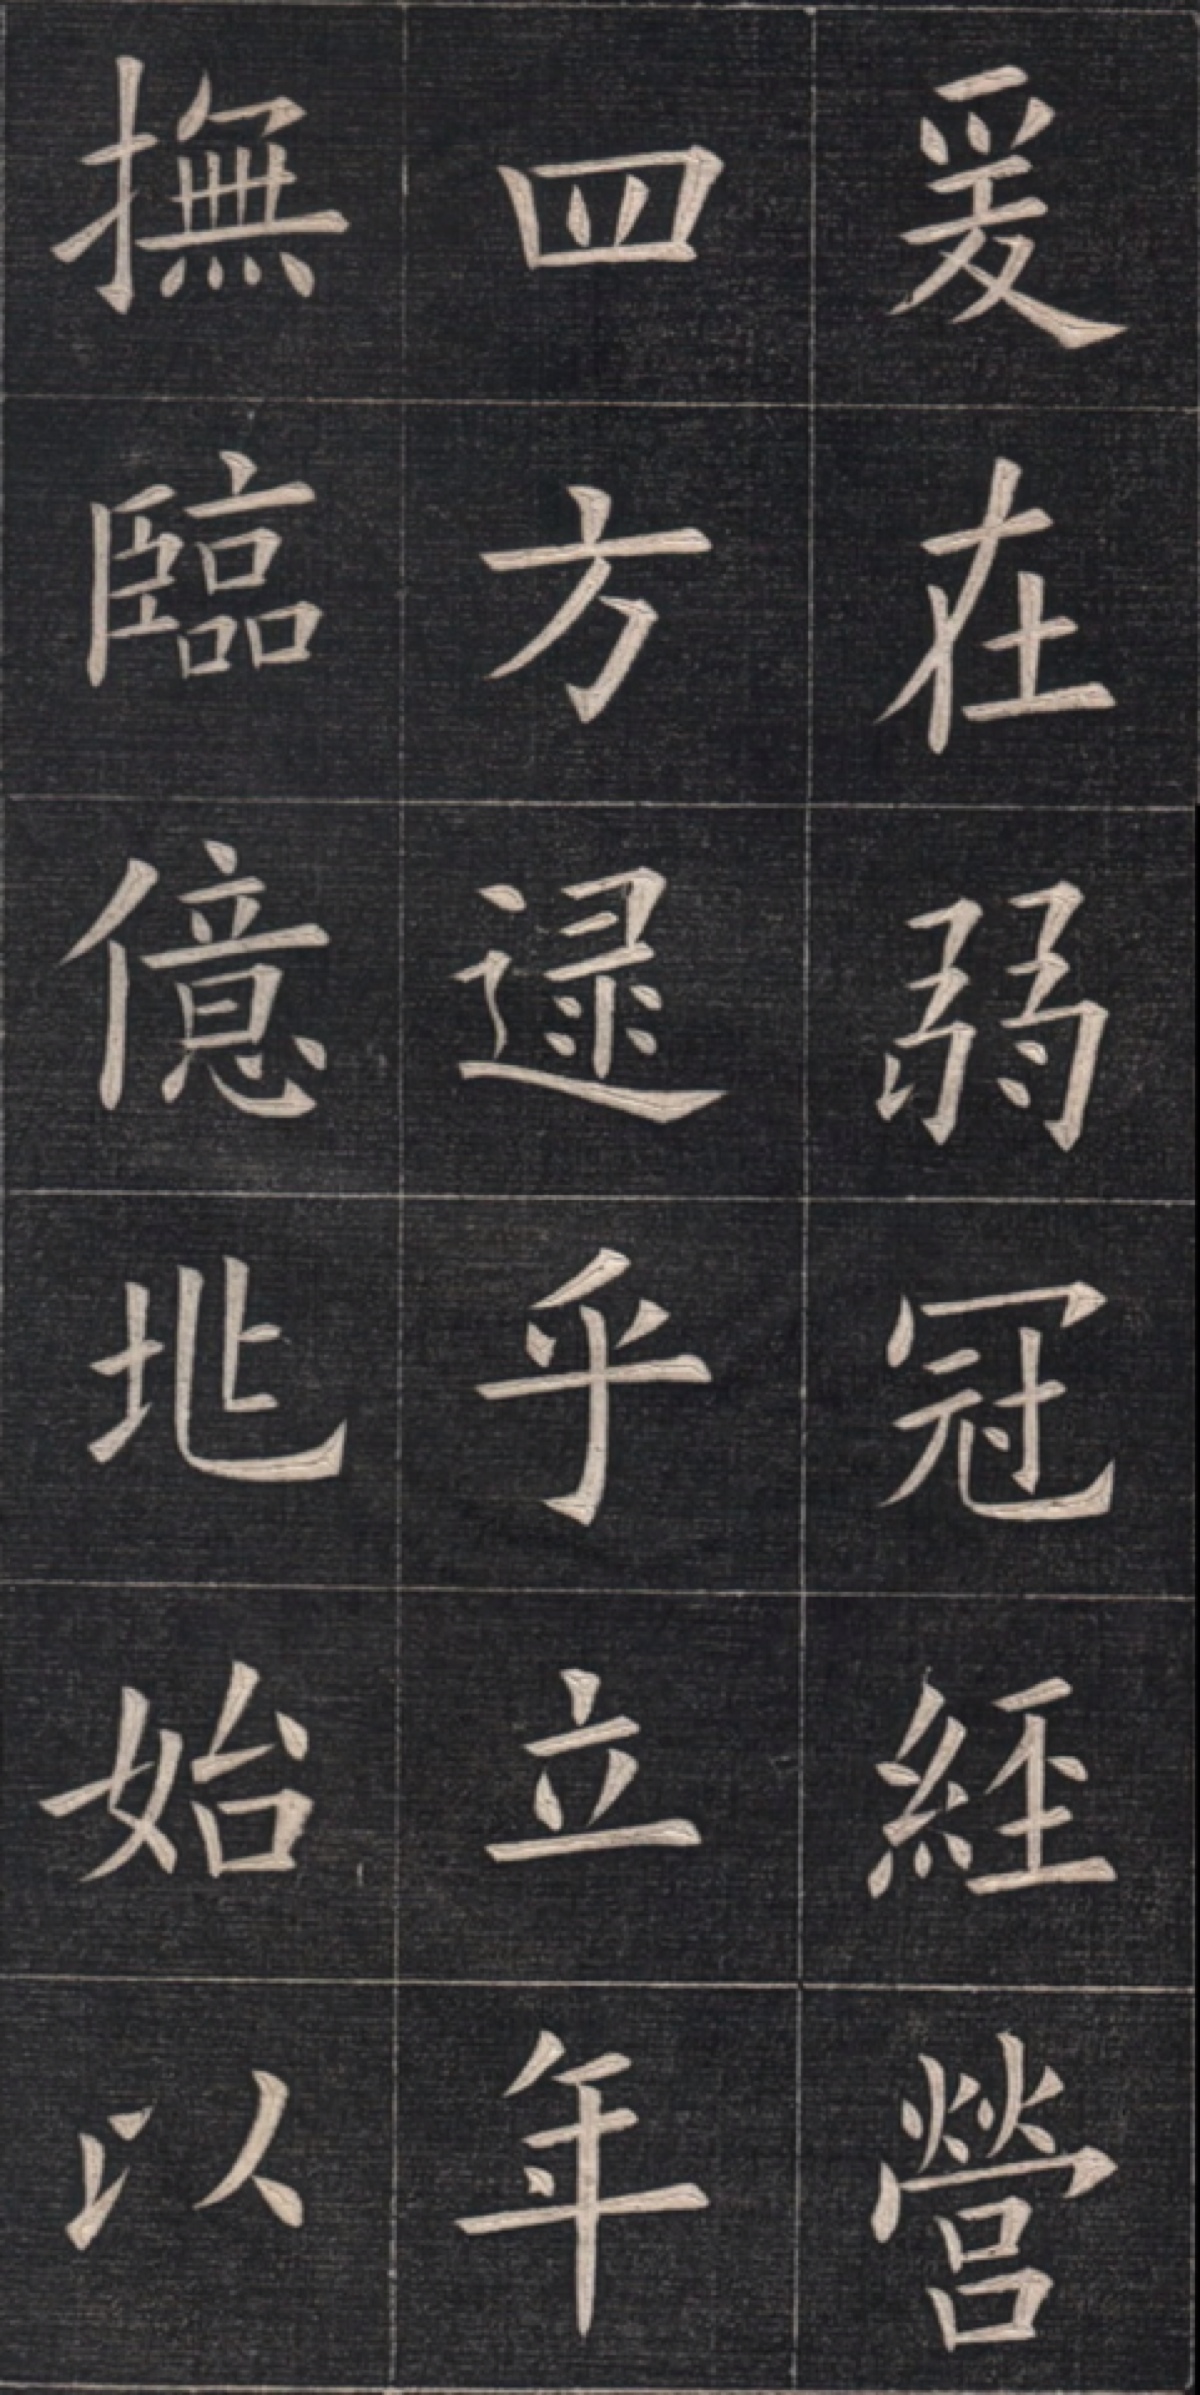 爰在弱冠經營
四方逯乎立年
撫臨億兆始以